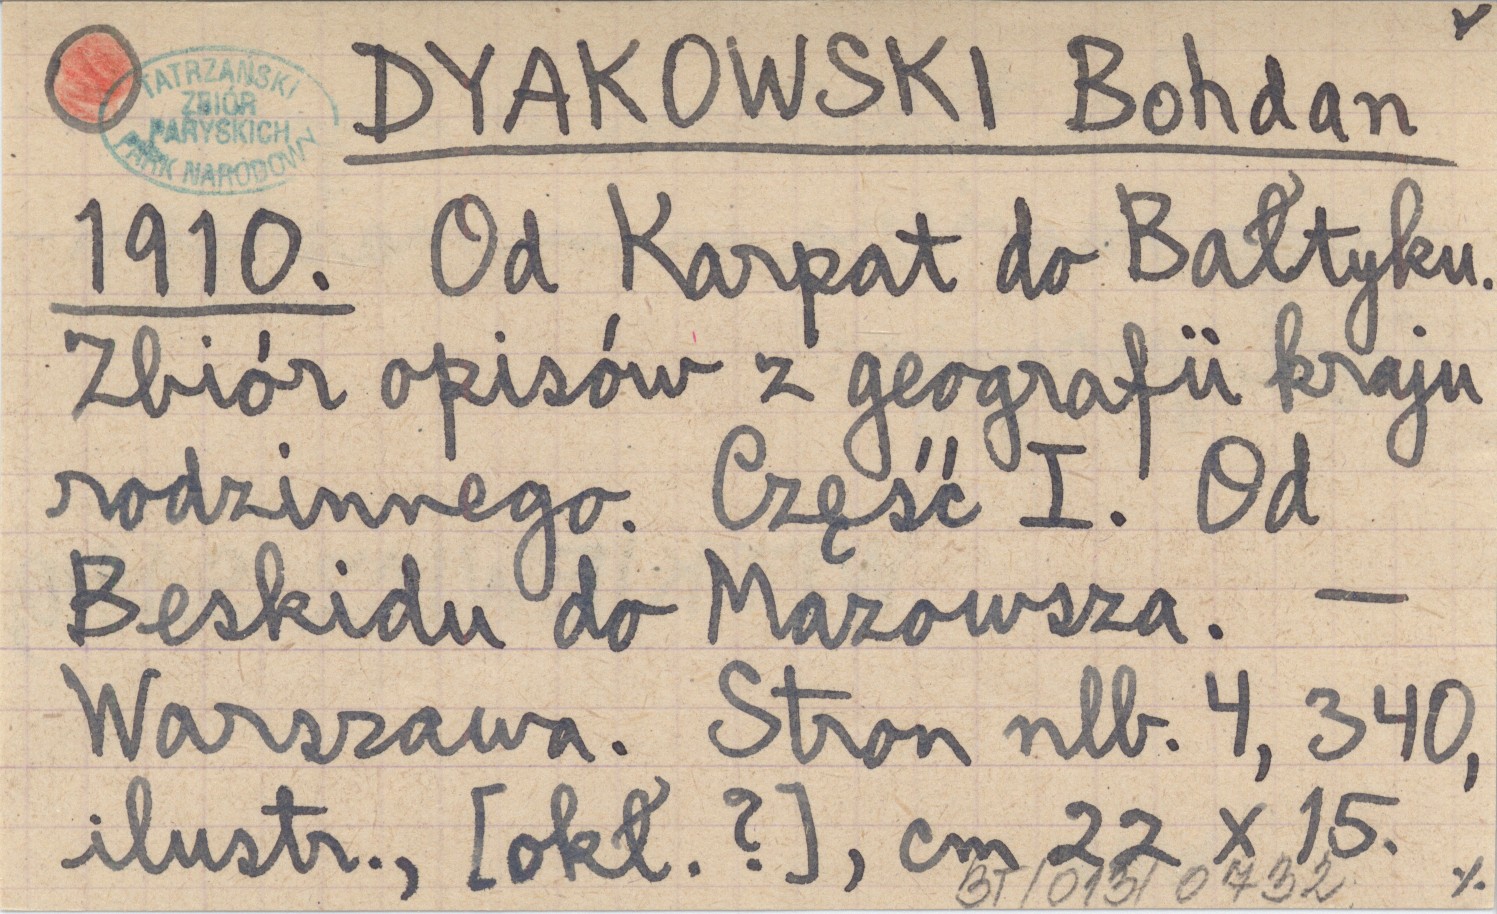 TATRZAŃSKI
ZBIÓR
PARYSKICH
PARK NARODOWY
DYAKOWSKI Bohdan
1910. Od Karpat do Bałtyku.
Zbiór opisów z geografii kraju
rodzinnego. Część I. Od
Beskidu do Mazowsza. —
Warszawa. Stron nlb. 4, 340,
ilustr., [okł. ?], cm 22 x 15.
BT/013/0732 %.